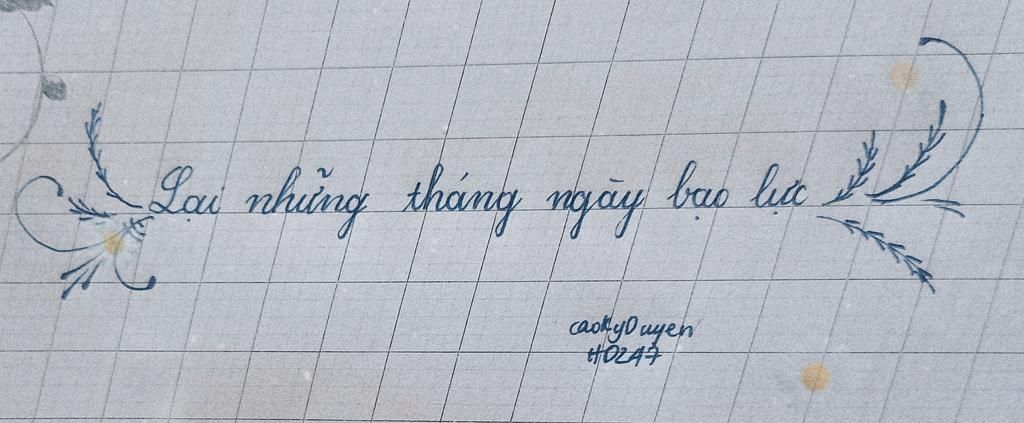 Lại những tháng ngày bạo lực
caokyDuyen
#D2A7